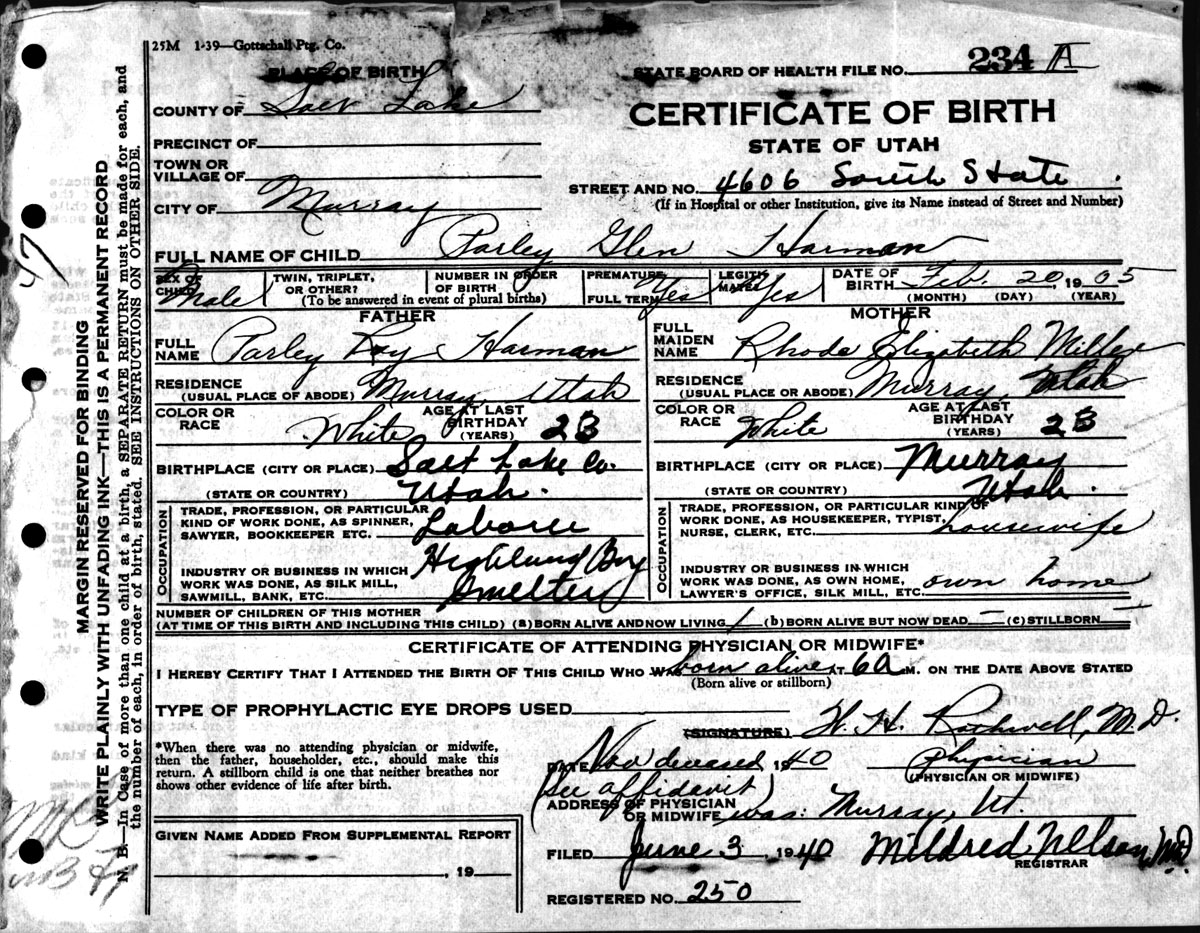 25M 1-39—Gottschall Ptg. Co.
PLACE OF BIRTH
STATE BOARD OF HEALTH FILE NO. 234 A
COUNTY OF Salt Lake
CERTIFICATE OF BIRTH
STATE OF UTAH
PRECINCT OF
TOWN OR
VILLAGE OF
STREET AND NO. 4606 South State
(If in Hospital or other Institution, give its Name instead of Street and Number)
CITY OF Murray
FULL NAME OF CHILD Parley Glen Harman
SEX OF CHILD Male
TWIN, TRIPLET, OR OTHER?
NUMBER IN ORDER OF BIRTH
(To be answered in event of plural births)
PREMATURE
FULL TERM Yes
LEGITIMATE? Yes
DATE OF BIRTH Feb. 20, 1905
(MONTH) (DAY) (YEAR)
FATHER
FULL NAME Parley Roy Harman
RESIDENCE
(USUAL PLACE OF ABODE) Murray, Utah
COLOR OR RACE White
AGE AT LAST BIRTHDAY (YEARS) 23
BIRTHPLACE (CITY OR PLACE) Salt Lake Co.
(STATE OR COUNTRY) Utah.
OCCUPATION
TRADE, PROFESSION, OR PARTICULAR
KIND OF WORK DONE, AS SPINNER,
SAWYER, BOOKKEEPER ETC. Laborer
INDUSTRY OR BUSINESS IN WHICH
WORK WAS DONE, AS SILK MILL,
SAWMILL, BANK, ETC. Highland Boy Smelter
MOTHER
FULL MAIDEN NAME Rhode Elizabeth Miller
RESIDENCE
(USUAL PLACE OF ABODE) Murray, Utah
COLOR OR RACE White
AGE AT LAST BIRTHDAY (YEARS) 23
BIRTHPLACE (CITY OR PLACE) Murray
(STATE OR COUNTRY) Utah.
OCCUPATION
TRADE, PROFESSION, OR PARTICULAR KIND OF
WORK DONE, AS HOUSEKEEPER, TYPIST,
NURSE, CLERK, ETC. housewife
INDUSTRY OR BUSINESS IN WHICH
WORK WAS DONE, AS OWN HOME,
LAWYER'S OFFICE, SILK MILL, ETC. own home
NUMBER OF CHILDREN OF THIS MOTHER
(AT TIME OF THIS BIRTH AND INCLUDING THIS CHILD) (a) BORN ALIVE AND NOW LIVING 1 (b) BORN ALIVE BUT NOW DEAD — (c) STILLBORN —
CERTIFICATE OF ATTENDING PHYSICIAN OR MIDWIFE*
I HEREBY CERTIFY THAT I ATTENDED THE BIRTH OF THIS CHILD WHO WAS born alive AT 6 A M. ON THE DATE ABOVE STATED
(Born alive or stillborn)
TYPE OF PROPHYLACTIC EYE DROPS USED
(SIGNATURE) W. H. Rothwell, M.D.
*When there was no attending physician or midwife,
then the father, householder, etc., should make this
return. A stillborn child is one that neither breathes nor
shows other evidence of life after birth.
DATE Now deceased 1940 Physician
(PHYSICIAN OR MIDWIFE)
(See affidavit)
ADDRESS OF PHYSICIAN
OR MIDWIFE was: Murray, Ut.
GIVEN NAME ADDED FROM SUPPLEMENTAL REPORT
, 19
FILED June 3, 1940 Mildred Nelson, M.D.
REGISTRAR
REGISTERED NO. 250
MARGIN RESERVED FOR BINDING
WRITE PLAINLY WITH UNFADING INK—THIS IS A PERMANENT RECORD
N. B.—In Case of more than one child at a birth, a SEPARATE RETURN must be made for each, and
the number of each, in order of birth, stated. SEE INSTRUCTIONS ON OTHER SIDE.
47